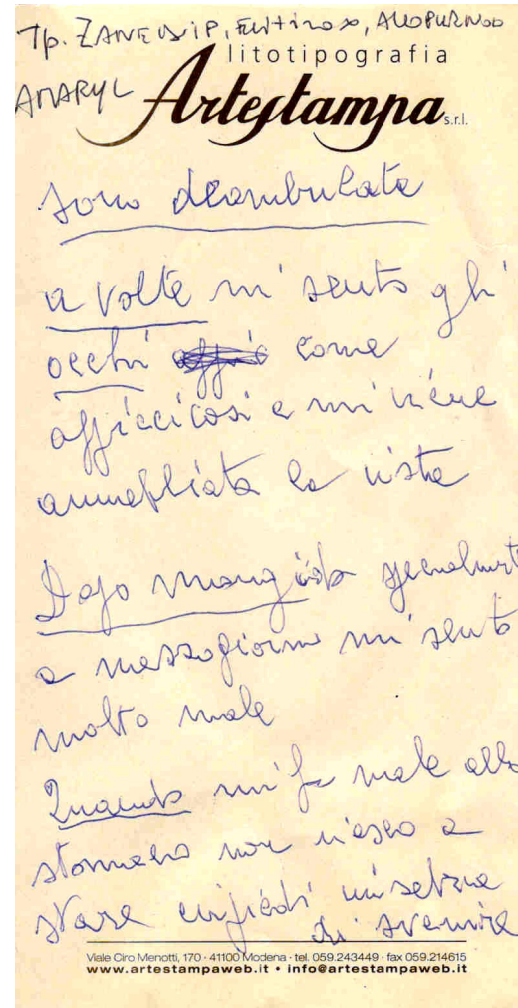 Tp. ZANEDIP, EUTIROX, ALLOPURINOLO
litotipografia
AMARYL
Artestampa s.r.l.
sono deambulata
a volte mi sento gli
occhi come
appiccicosi e mi viene
annebbiata la vista
Dopo mangiato specialmente
a mezzogiorno mi sento
molto male
Quando mi fa male allo
stomaco non riesco a
stare in piedi mi sembra
di svenire
Viale Ciro Menotti, 170 - 41100 Modena - tel. 059.243449 - fax 059.214615
www.artestampaweb.it • info@artestampaweb.it